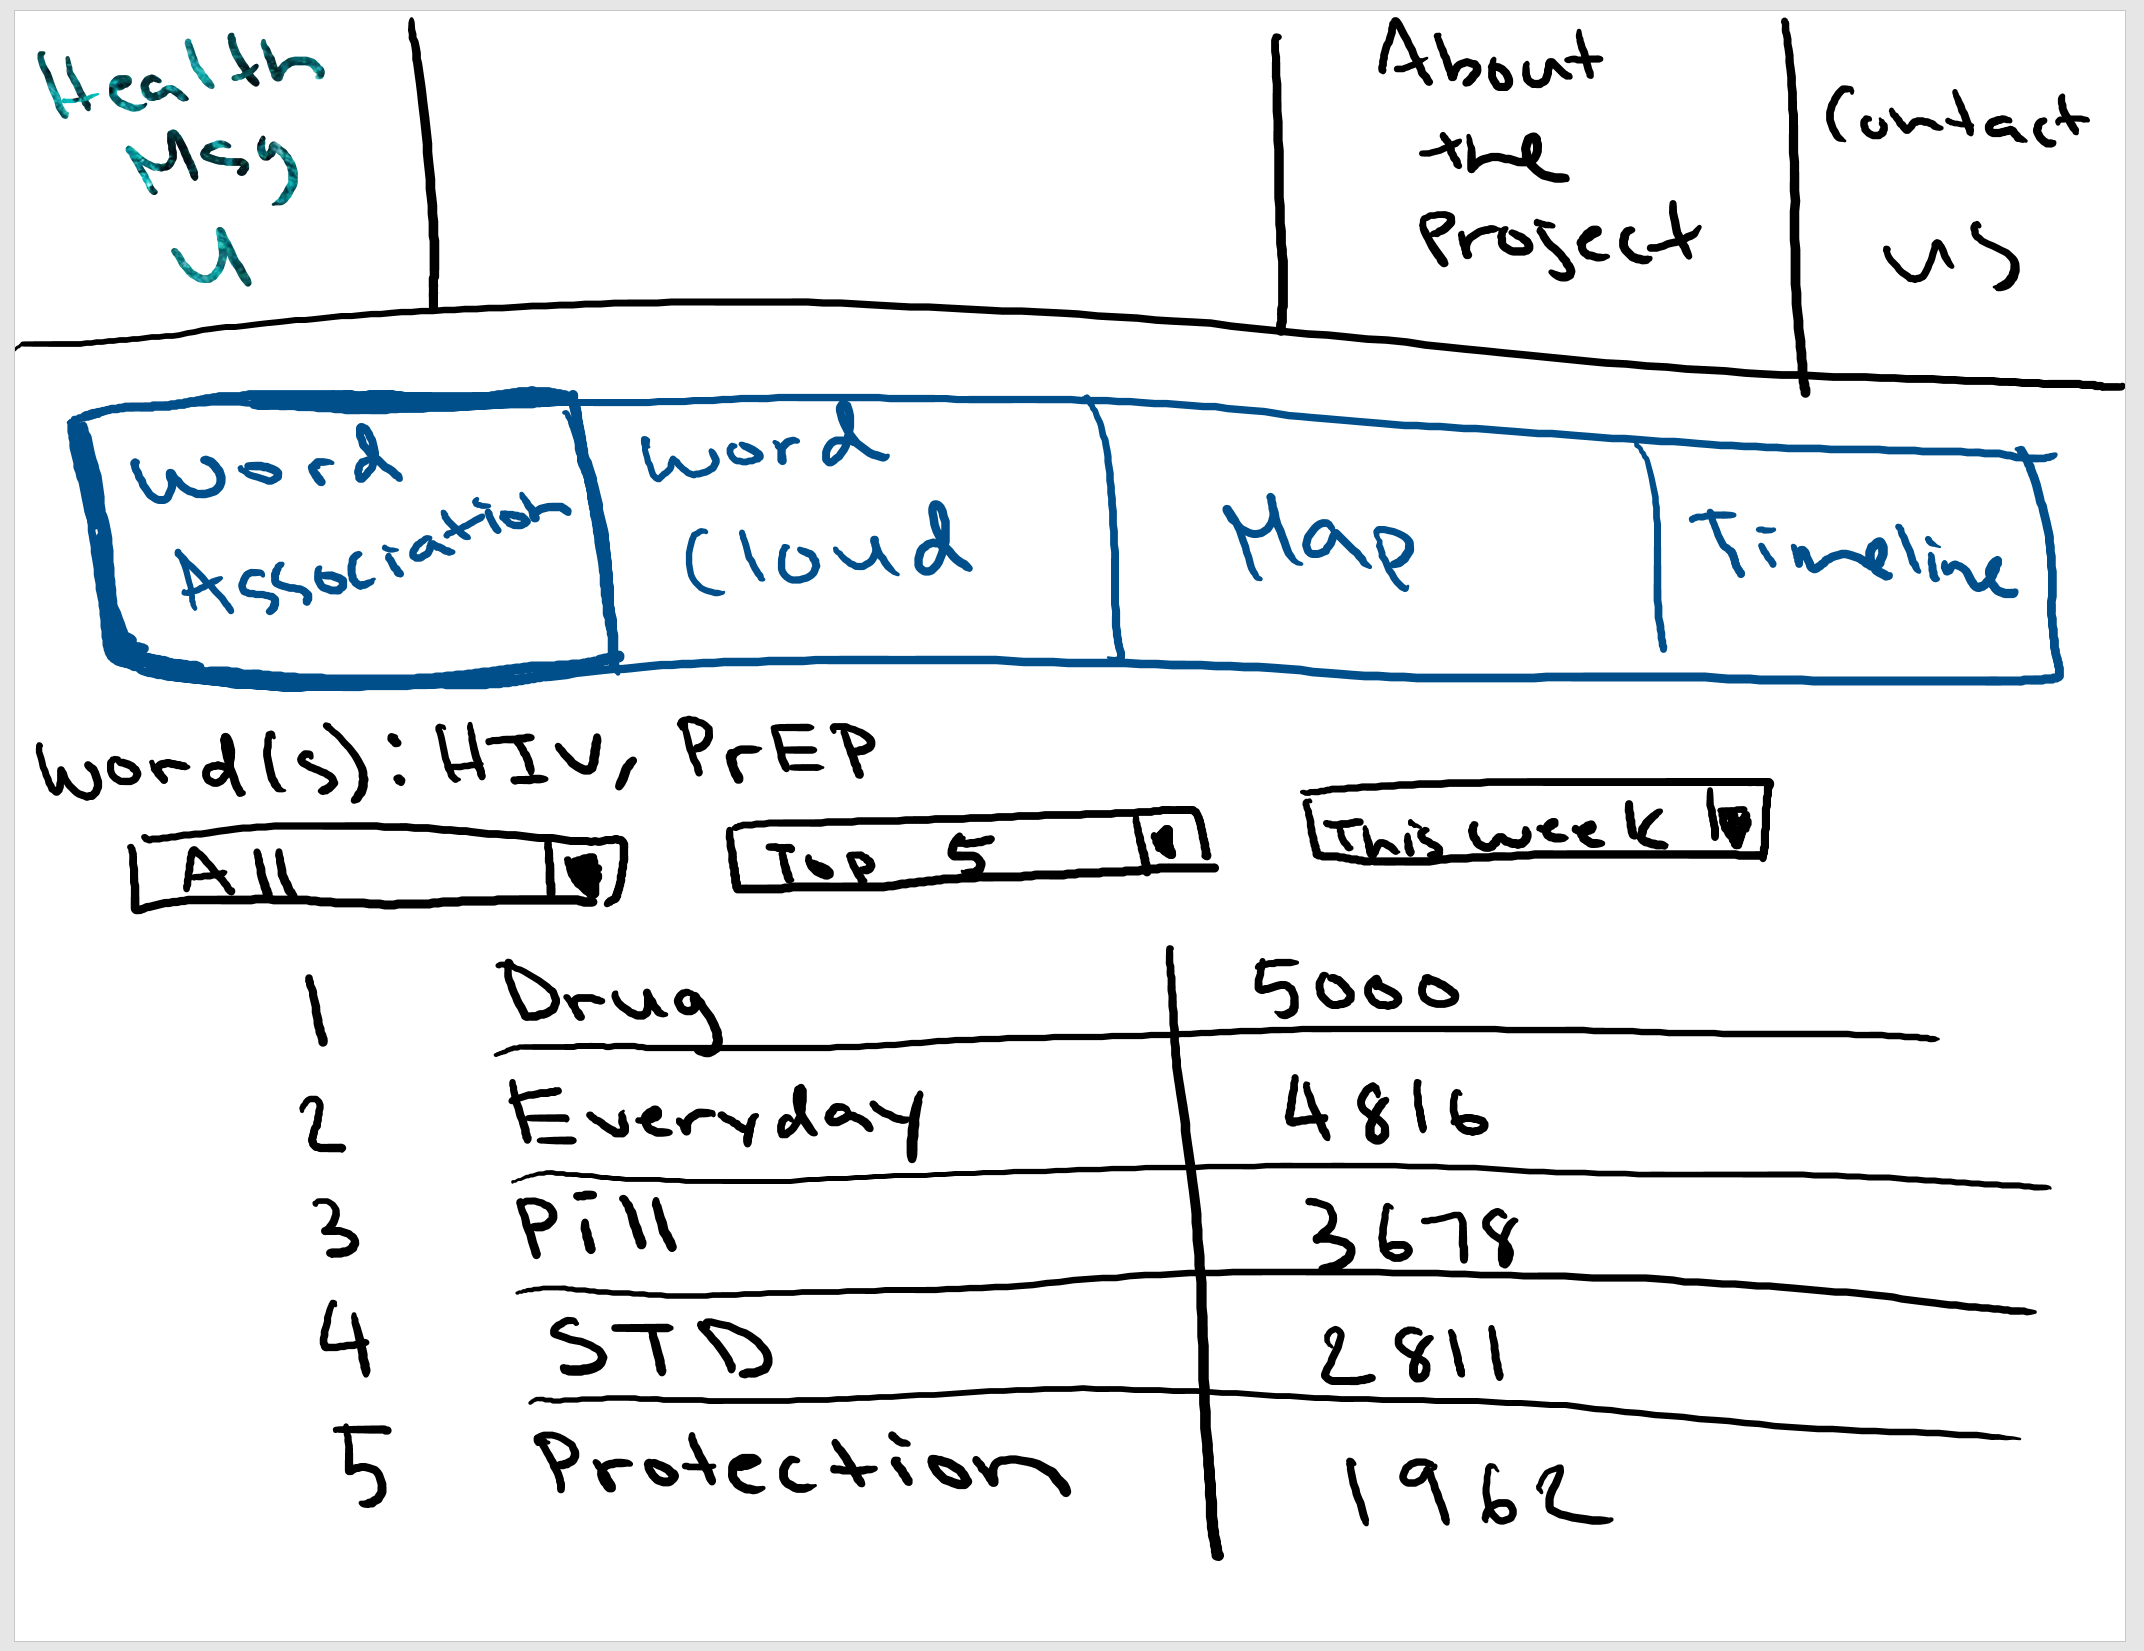 Health
Msg
U
About
the
Project
Contact
us
Word
Association
Word
Cloud
Map
Timeline
Word(s): HIV, PrEP
All
Top 5
This week
1 Drug 5000
2 Everyday 4816
3 Pill 3678
4 STD 2811
5 Protection 1962